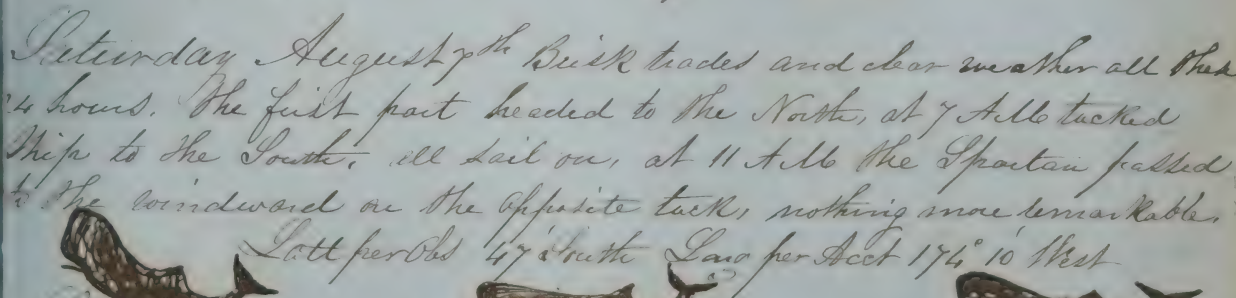 Saturday August 7th Brisk trades and clear weather all these
24 hours. The first part headed to the North, at 7 A.M. tacked
Ship to the South, all sail on, at 11 A.M. the Spartan passed
to the windward on the opposite tack, nothing more remarkable.
Latt per Obs 47' South Lon per Acct 174° 10' West